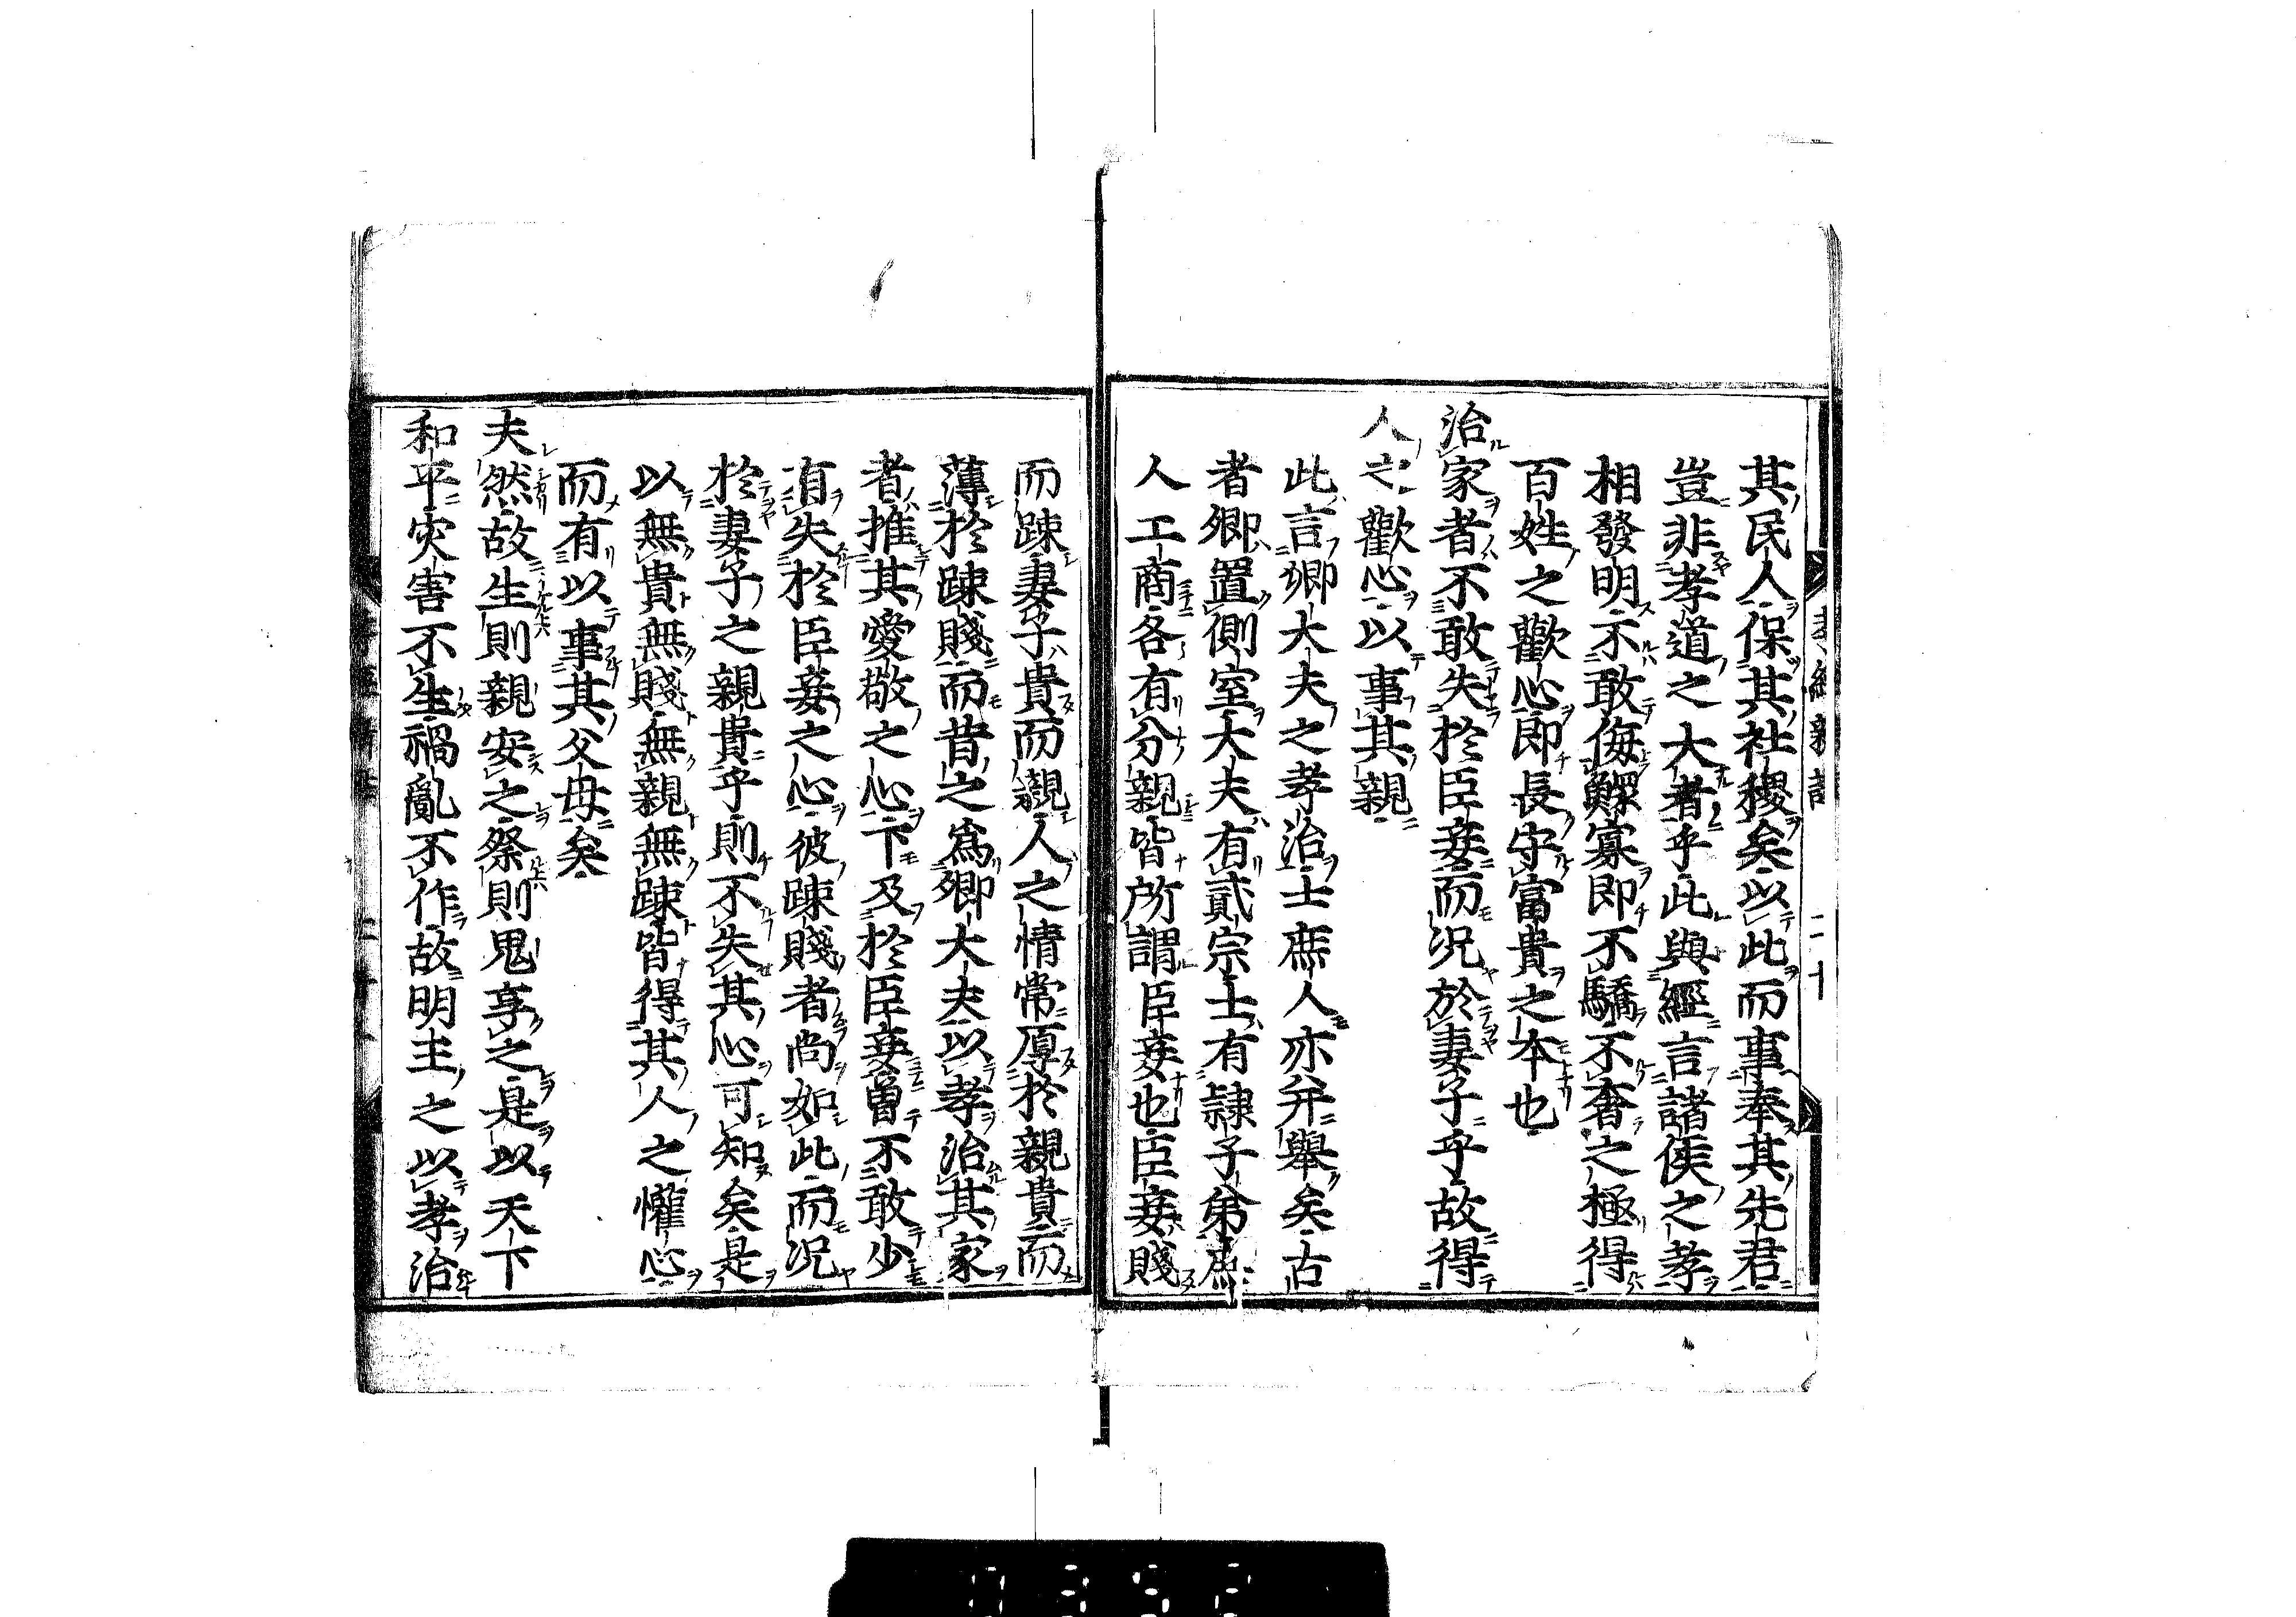 其民人保其社稷矣以此而事奉其先君
豈非孝道之大者乎此與經言諸侯之孝
相發明不敢侮鰥寡即不驕不奢之極得
百姓之歡心即長守富貴之本也
治家者不敢失於臣妾而况於妻子乎故得
人之歡心以事其親
此言卿大夫之孝治士庶人亦并舉矣古
者卿置側室大夫有貳宗士有隷子弟庶
人工商各有分親皆所謂臣妾也臣妾賤
而疎妻子貴而親人之情常厚於親貴而
薄於疎賤而昔之爲卿大夫以孝治其家
者推其愛敬之心下及於臣妾曽不敢少
有失於臣妾之心彼疎賤者尚如此而况
於妻子之親貴乎則不失其心可知矣是
以無貴無賤無親無疎皆得其人之懽心
而有以事其父母矣
夫然故生則親安之祭則鬼享之是以天下
和平灾害不生禍亂不作故明王之以孝治